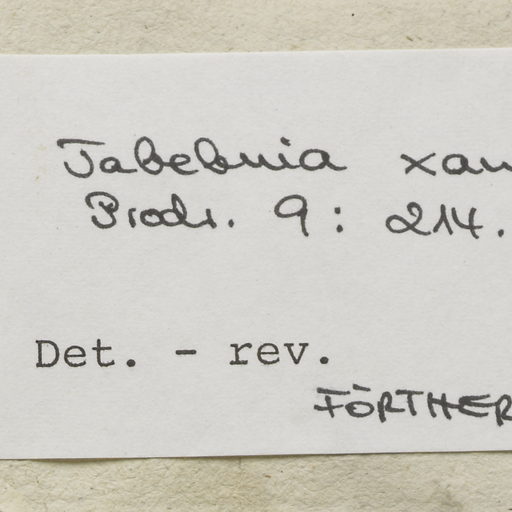 Tabebuia xan
Prodr. 9: 214.
Det. - rev.
FÖRTHER